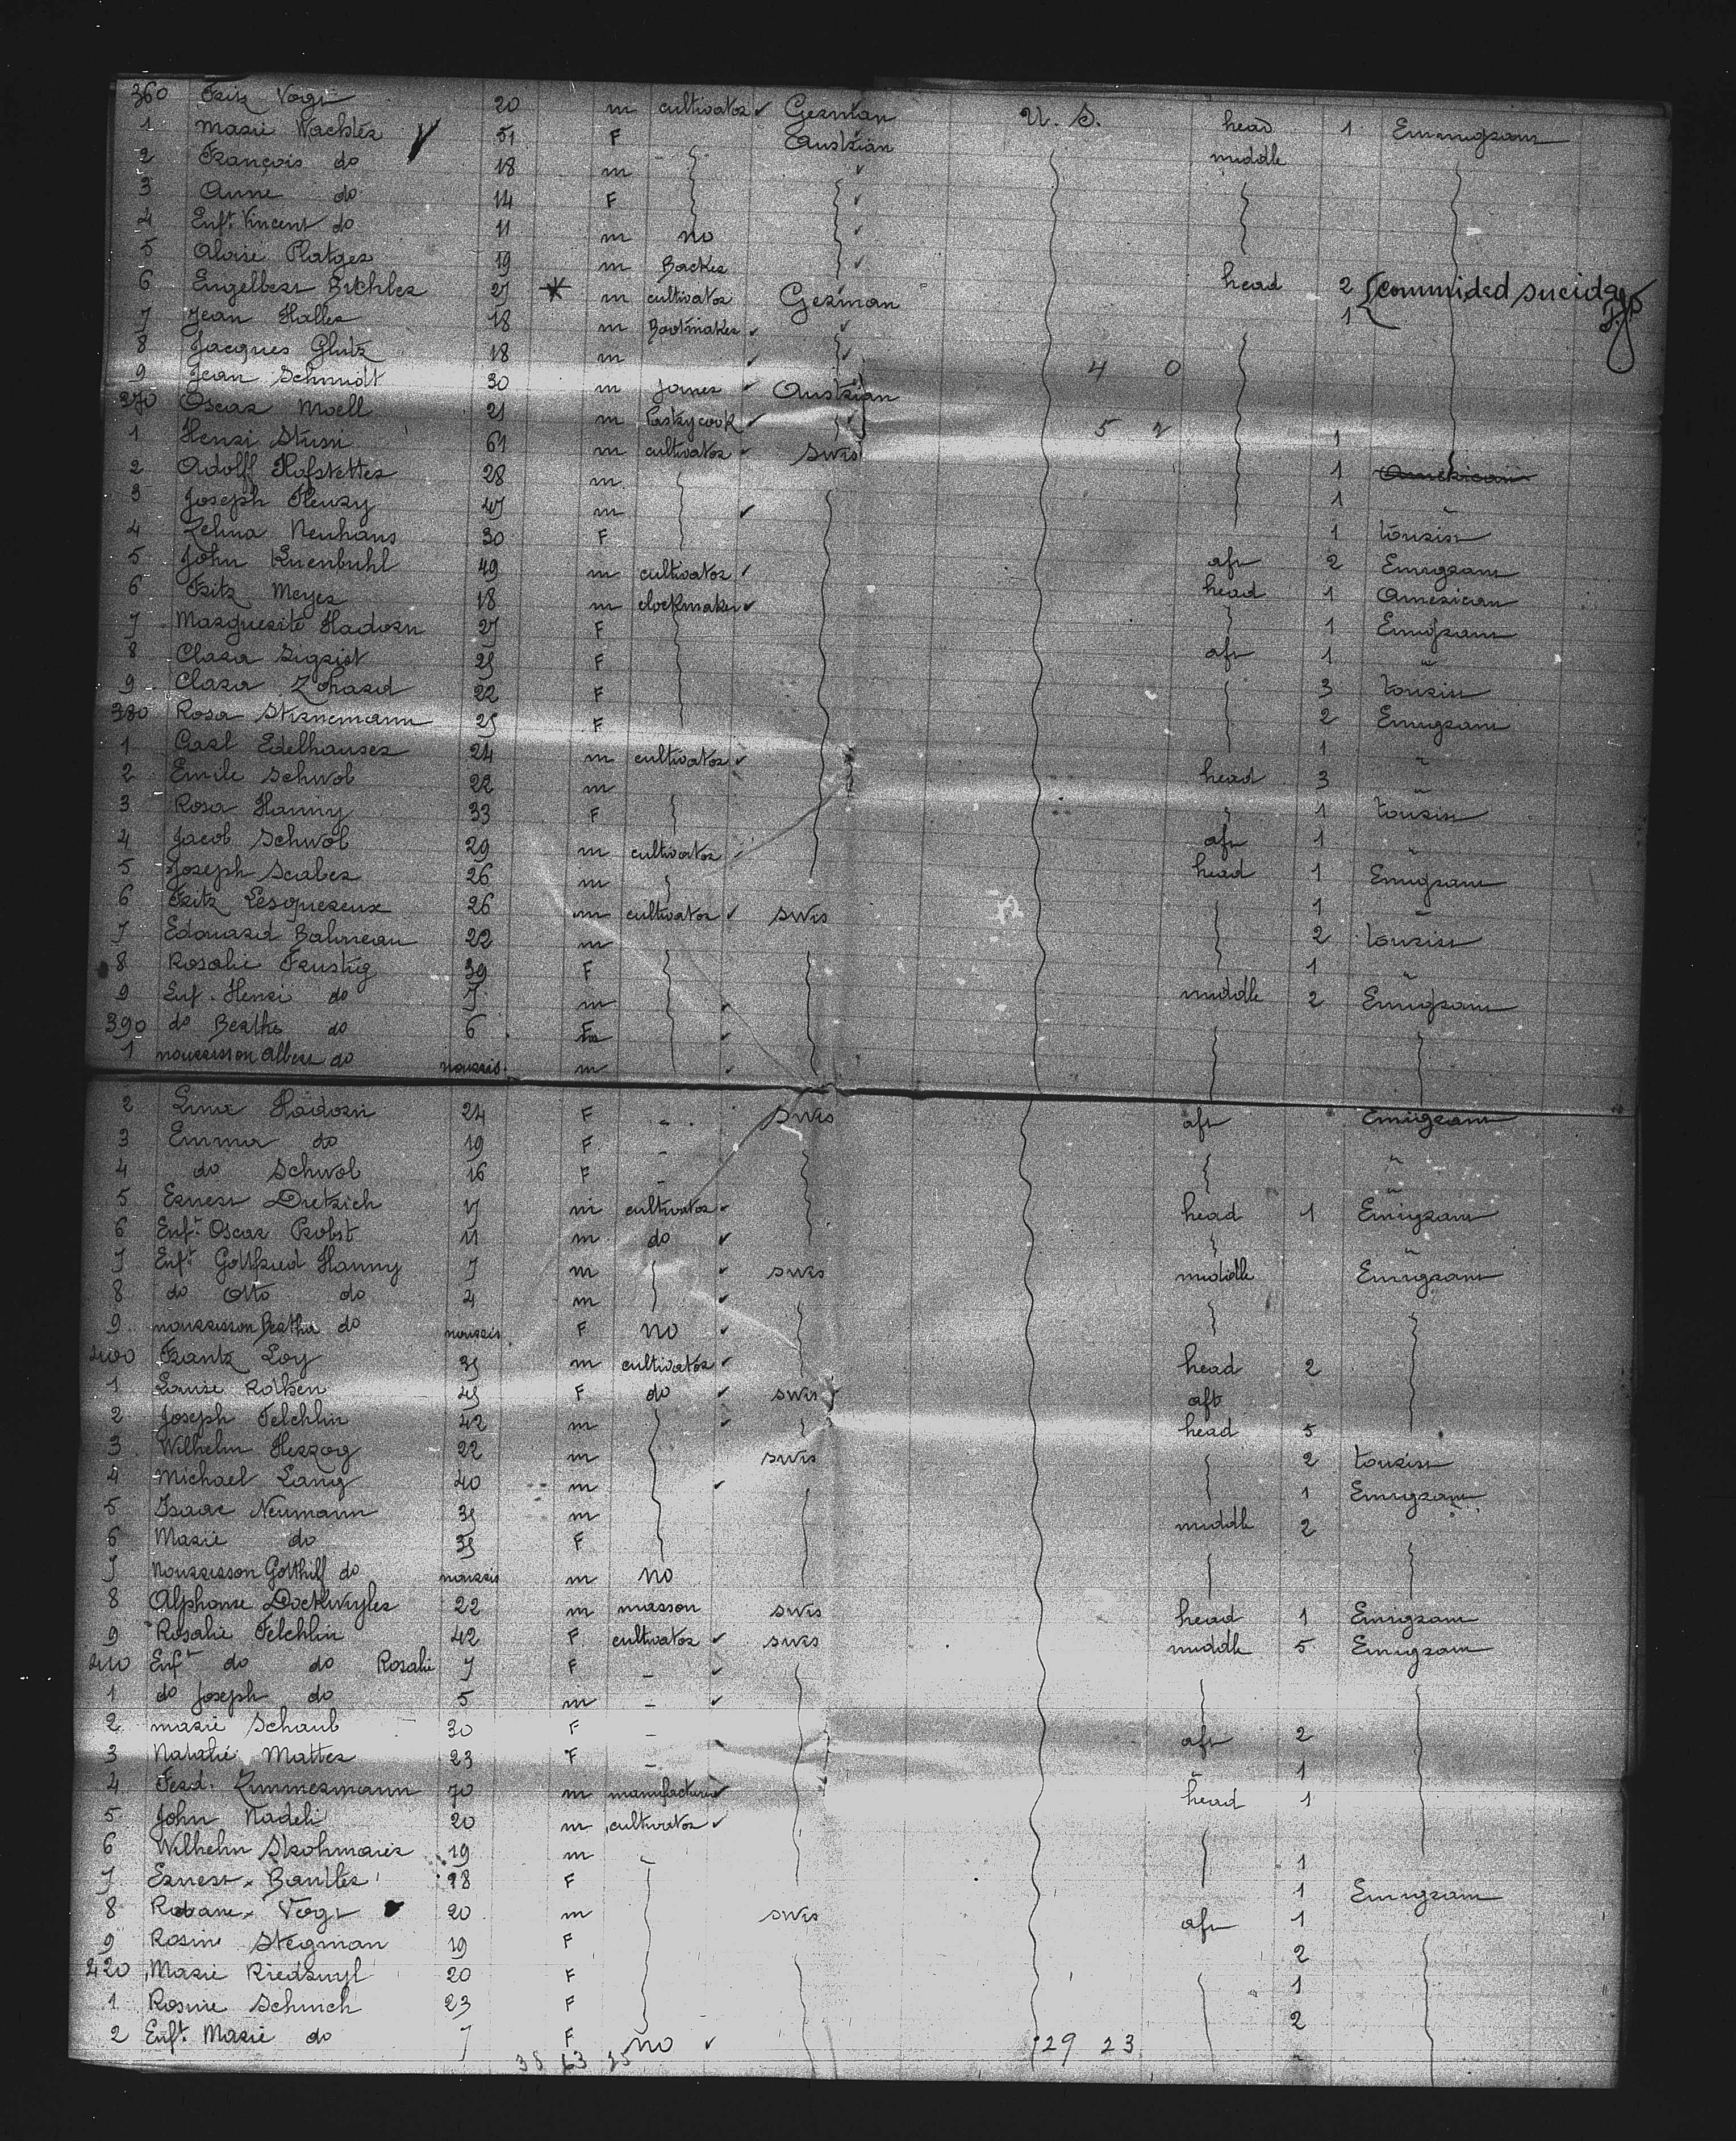 360 Fritz Vogt 20 m cultivator ✓ German U. S. head 1 Emmigrant
1 Marie Wachter 51 F Austrian middle
2 François do 18 m
3 Anne do 14 F
4 Enft Vincent do 11 m no
5 Aloise Platzer 19 m Backer
6 Engelbert Bichler 27 * m cultivator German head 2 {commided sucida
7 Jean Haller 18 m Bootmaker ✓ 1
8 Jacques Glutz 18 m ✓ 4 0
9 Jean Schmidt 30 m joiner ✓ Austrian
370 Oscar Moell 21 m Pastrycook ✓ 5 2
1 Henri Stussi 61 m cultivator ✓ swis 1
2 Adolff Hofstetter 28 m 1 American
3 Joseph Fleury 47 m ✓ 1 "
4 Zelina Neuhaus 30 F 1 tourist
5 John Kuenbuhl 49 m cultivator ✓ aft 2 Emigrant
6 Fritz Meyer 18 m clockmaker ✓ head 1 American
7 Marguerite Hadorn 27 F 1 Emigrant
8 Clara Sigrist 25 F aft 1 "
9 Clara 22 F 3 tourist
380 Rosa Stirnemann 25 F 2 Emigrant
1 Carl Edelhauser 24 m cultivator ✓ 1 "
2 Emile Schwob 22 m head 3 "
3 Rosa Hanny 33 F 1 tourist
4 Jacob Schwob 29 m cultivator ✓ aft 1 "
5 Joseph 26 m head 1 Emigrant
6 Fritz Lesquereux 26 m cultivator ✓ swis 1 "
7 Edouard 22 m 2 tourist
8 Rosalie Frustig 39 F 1 "
9 Enf. Henri do 7 m ✓ middle 2 Emigrant
390 do Berthe do 6 F ✓
1 nourrisson Albert do nourris. m ✓
2 Lina Hadorn 24 F - swis aft Emigrant
3 Emma do 19 F - "
4 do Schwob 16 F - "
5 Ernest Dietrich 17 m cultivator ✓ head 1 Emigrant
6 Enft. Oscar Probst 11 m do ✓ "
7 Enft. Gottfried Hanny 7 m ✓ swis middle Emigrant
8 do Otto do 4 m ✓
9 nourrisson Bertha do nourris. F no ✓
400 Frantz Loy 35 m cultivator ✓ head 2
1 Louise Rothen 45 F do ✓ swis aft
2 Joseph Felchlin 42 m ✓ head 5
3 Wilhelm Herzog 22 m swis 2 tourist
4 Michael Lang 40 m ✓ 1 Emigrant
5 Isaac Neumann 35 m middle 2
6 Marie do 35 F
7 Nourrisson Gotthilf do nourris m no
8 Alphonse Dockwyler 22 m masson swis head 1 Emigrant
9 Rosalie Felchlin 42 F cultivator ✓ swis middle 5 Emigrant
410 Enft do do Rosalie 7 F - ✓
1 do Joseph do 5 m - ✓
2 Marie Schaub 30 F - aft 2
3 Natalie Matter 23 F - 1
4 Ferd. Zimmermann 70 m manufacturer ✓ head 1
5 John Nadeli 20 m cultivator ✓
6 Wilhelm Strohmaier 19 m 1
7 Ernest Bantler 28 F 1 Emigrant
8 Vogt 20 m swis aft 1
9 Rosine Stegman 19 F 2
420 Marie Riedwyl 20 F 1
1 Rosine Schuch 23 F 2
2 Enft. Marie do 7 F no ✓ 29 23